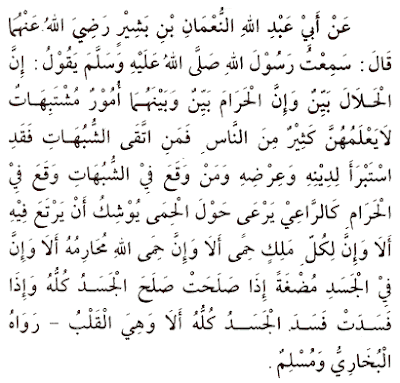 عَنْ أَبِيْ عَبْدِ اللهِ النُّعْمَانِ بْنِ بَشِيْرٍ رَضِيَ اللهُ عَنْهُمَا
قَالَ: سَمِعْتُ رَسُوْلَ اللهِ صَلَّى اللهُ عَلَيْهِ وَسَلَّمَ يَقُوْلُ: إِنَّ
الْحَلَالَ بَيِّنٌ وَإِنَّ الْحَرَامَ بَيِّنٌ وَبَيْنَهُمَا أُمُوْرٌ مُشْتَبِهَاتٌ
لَايَعْلَمُهُنَّ كَثِيْرٌ مِنَ النَّاسِ فَمَنِ اتَّقَى الشُّبُهَاتِ فَقَدِ
اسْتَبْرَأَ لِدِيْنِهِ وَعِرْضِهِ وَمَنْ وَقَعَ فِيْ الشُّبُهَاتِ وَقَعَ فِيْ
الْحَرَامِ كَالرَّاعِيْ يَرْعَى حَوْلَ الْحِمَى يُوْشِكُ أَنْ يَرْتَعَ فِيْهِ
أَلَا وَإِنَّ لِكُلِّ مَلِكٍ حِمًى أَلَا وَإِنَّ حِمَى اللهِ مُحَارِمُهُ أَلَا وَإِنَّ
فِيْ الْجَسَدِ مُضْغَةً إِذَا صَلَحَتْ صَلَحَ الْجَسَدُ كُلُّهُ وَإِذَا
فَسَدَتْ فَسَدَ الْجَسَدُ كُلُّهُ أَلَا وَهِيَ الْقَلْبُ – رَوَاهُ
الْبُخَارِيُّ وَمُسْلِمٌ.